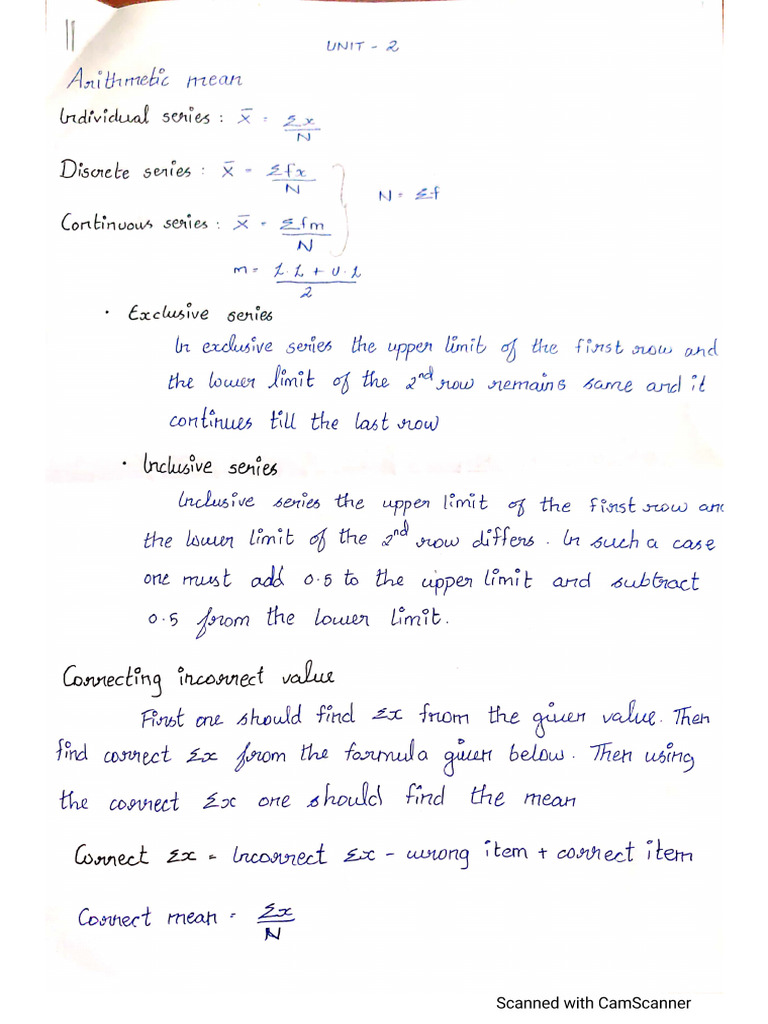 UNIT - 2
Arithmetic mean
Individual series : x̄ = Σx/N
Discrete series : x̄ = Σfx/N
N = Σf
Continuous series : x̄ = Σfm/N
m = L.L + U.L/2
· Exclusive series
In exclusive series the upper limit of the first row and
the lower limit of the 2nd row remains same and it
continues till the last row
· Inclusive series
Inclusive series the upper limit of the first row and
the lower limit of the 2nd row differs. In such a case
one must add 0.5 to the upper limit and subtract
0.5 from the lower limit.
Correcting incorrect value
First one should find Σx from the given value. Then
find correct Σx from the formula given below. Then using
the correct Σx one should find the mean
Correct Σx = Incorrect Σx - wrong item + correct item
Correct mean = Σx/N
Scanned with CamScanner